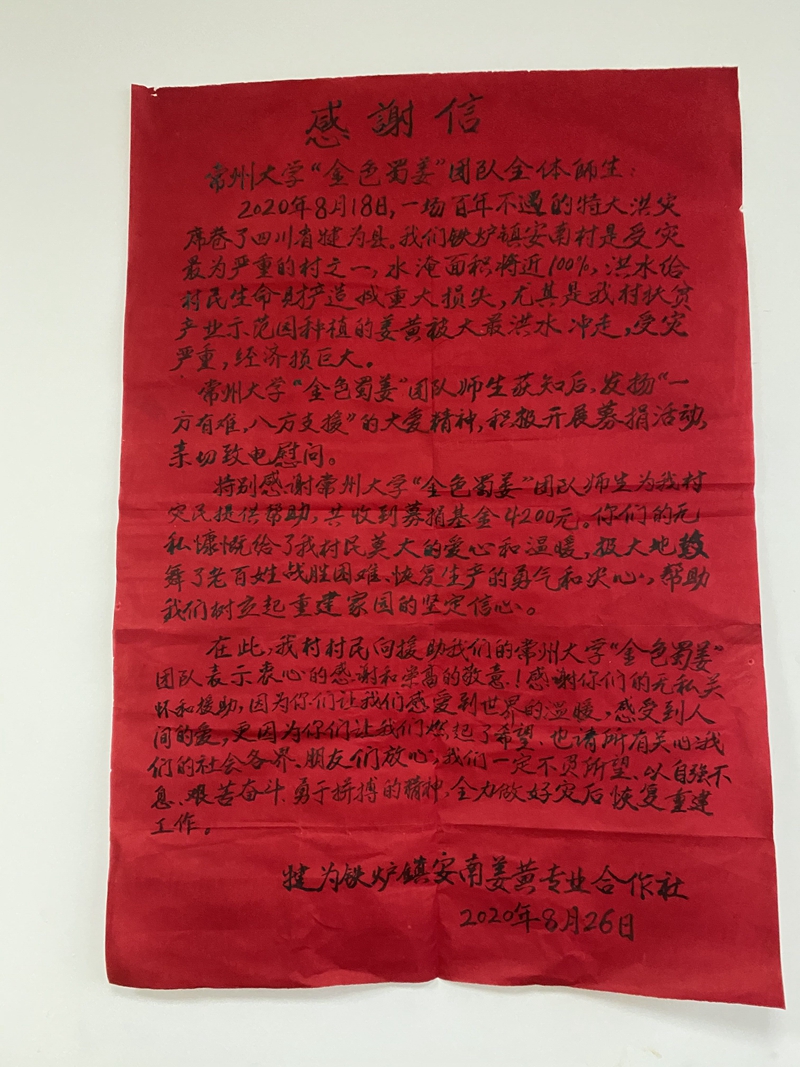 感謝信
常州大学“金色蜀姜”团队全体師生:
2020年8月18日,一场百年不遇的特大洪灾
席卷了四川省犍为县。我们铁炉镇安南村是受灾
最为严重的村之一,水淹面积将近100%,洪水给
村民生命财产造成重大损失,尤其是我村扶贫
产业示范园种植的姜黄被大量洪水冲走,受灾
严重,经济损巨大。
常州大学“金色蜀姜”团队师生获知后,发扬“一
方有难,八方支援”的大爱精神,积极开展募捐活动,
亲切致电慰问。
特别感谢常州大学“金色蜀姜”团队师生为我村
灾民提供帮助,共收到募捐基金4200元。你们的无
私慷慨给了我村民莫大的爱心和温暖,极大地鼓
舞了老百姓战胜困难、恢复生产的勇气和决心,帮助
我们树立起重建家园的坚定信心。
在此,我村村民向援助我们的常州大学“金色蜀姜”
团队表示衷心的感谢和崇高的敬意!感谢你们的无私关
怀和援助,因为你们让我们感受到世界的温暖,感受到人
间的爱,更因为你们让我们燃起了希望、也请所有关心我
们的社会各界、朋友们放心,我们一定不负所望、以自强不
息、艰苦奋斗、勇于拼搏的精神、全力做好灾后恢复重建
工作。
犍为铁炉镇安南姜黄专业合作社
2020年8月26日